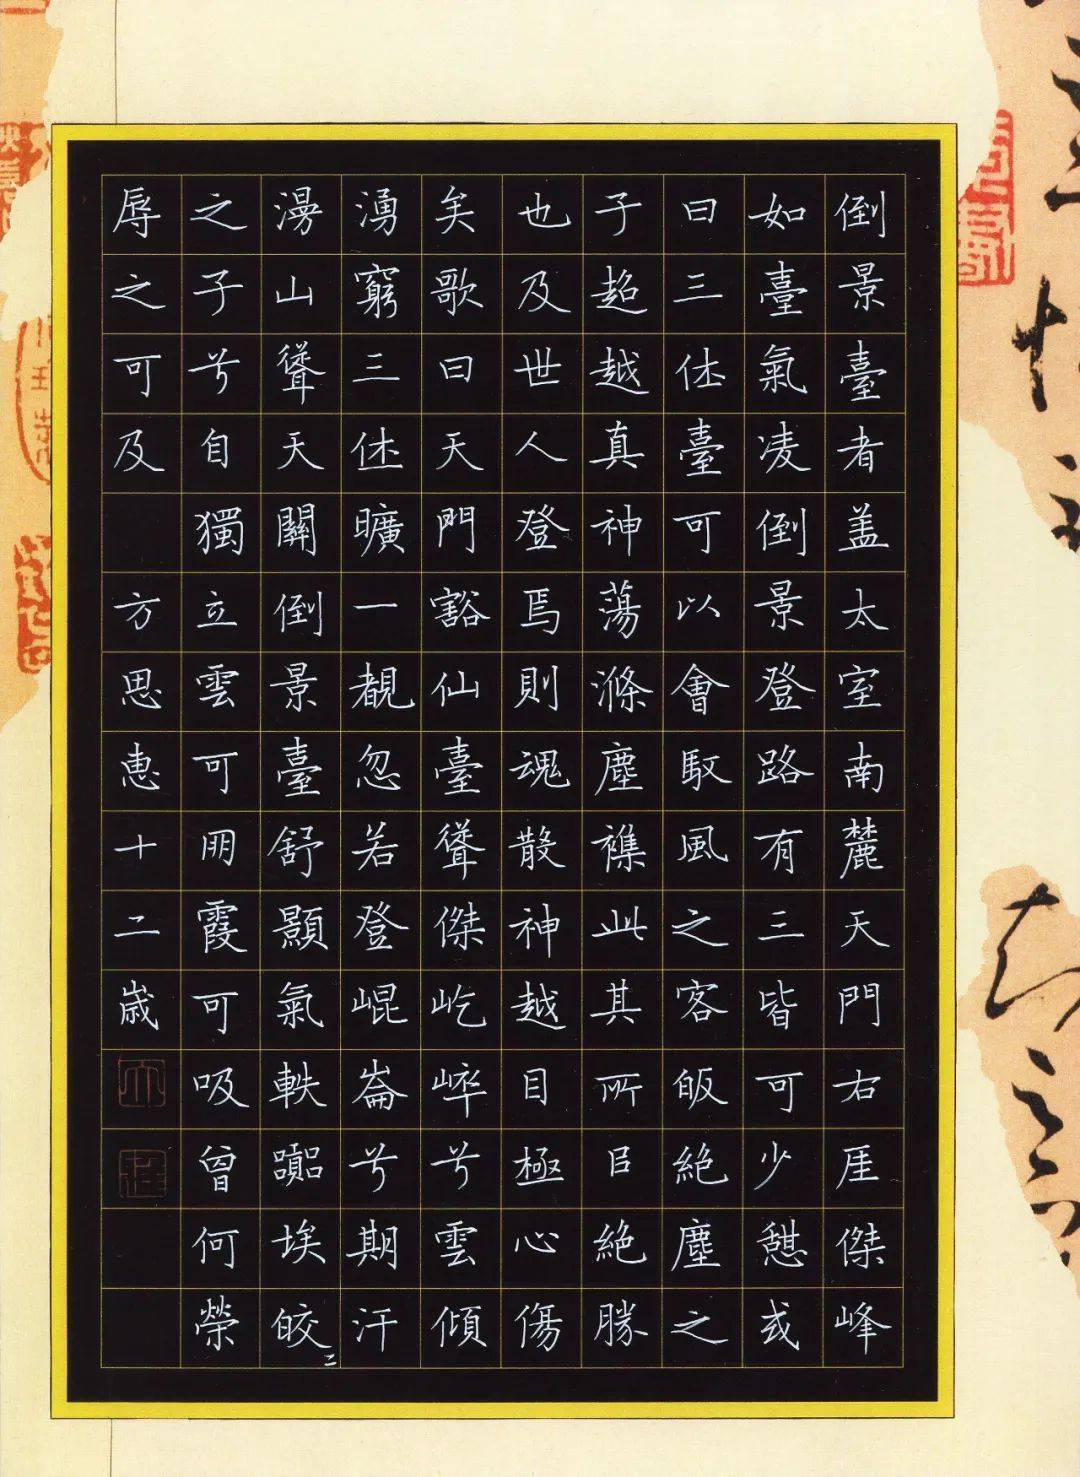 倒景臺者盖太室南麓天門右厓傑峰
如臺氣凌倒景登路有三皆可少憇或
曰三休臺可以會馭風之客皈絕塵之
子超越真神蕩滌塵襍此其所㠯絕勝
也及世人登焉則魂散神越目極心傷
矣歌曰天門豁仙臺聳傑屹崪兮雲傾
湧窮三休曠一覩忽若登崐崙兮期汗
漫山聳天關倒景臺舒顥氣軼囂埃皎二
之子兮自獨立雲可朋霞可吸曾何榮
辱之可及 方思惠十二歳